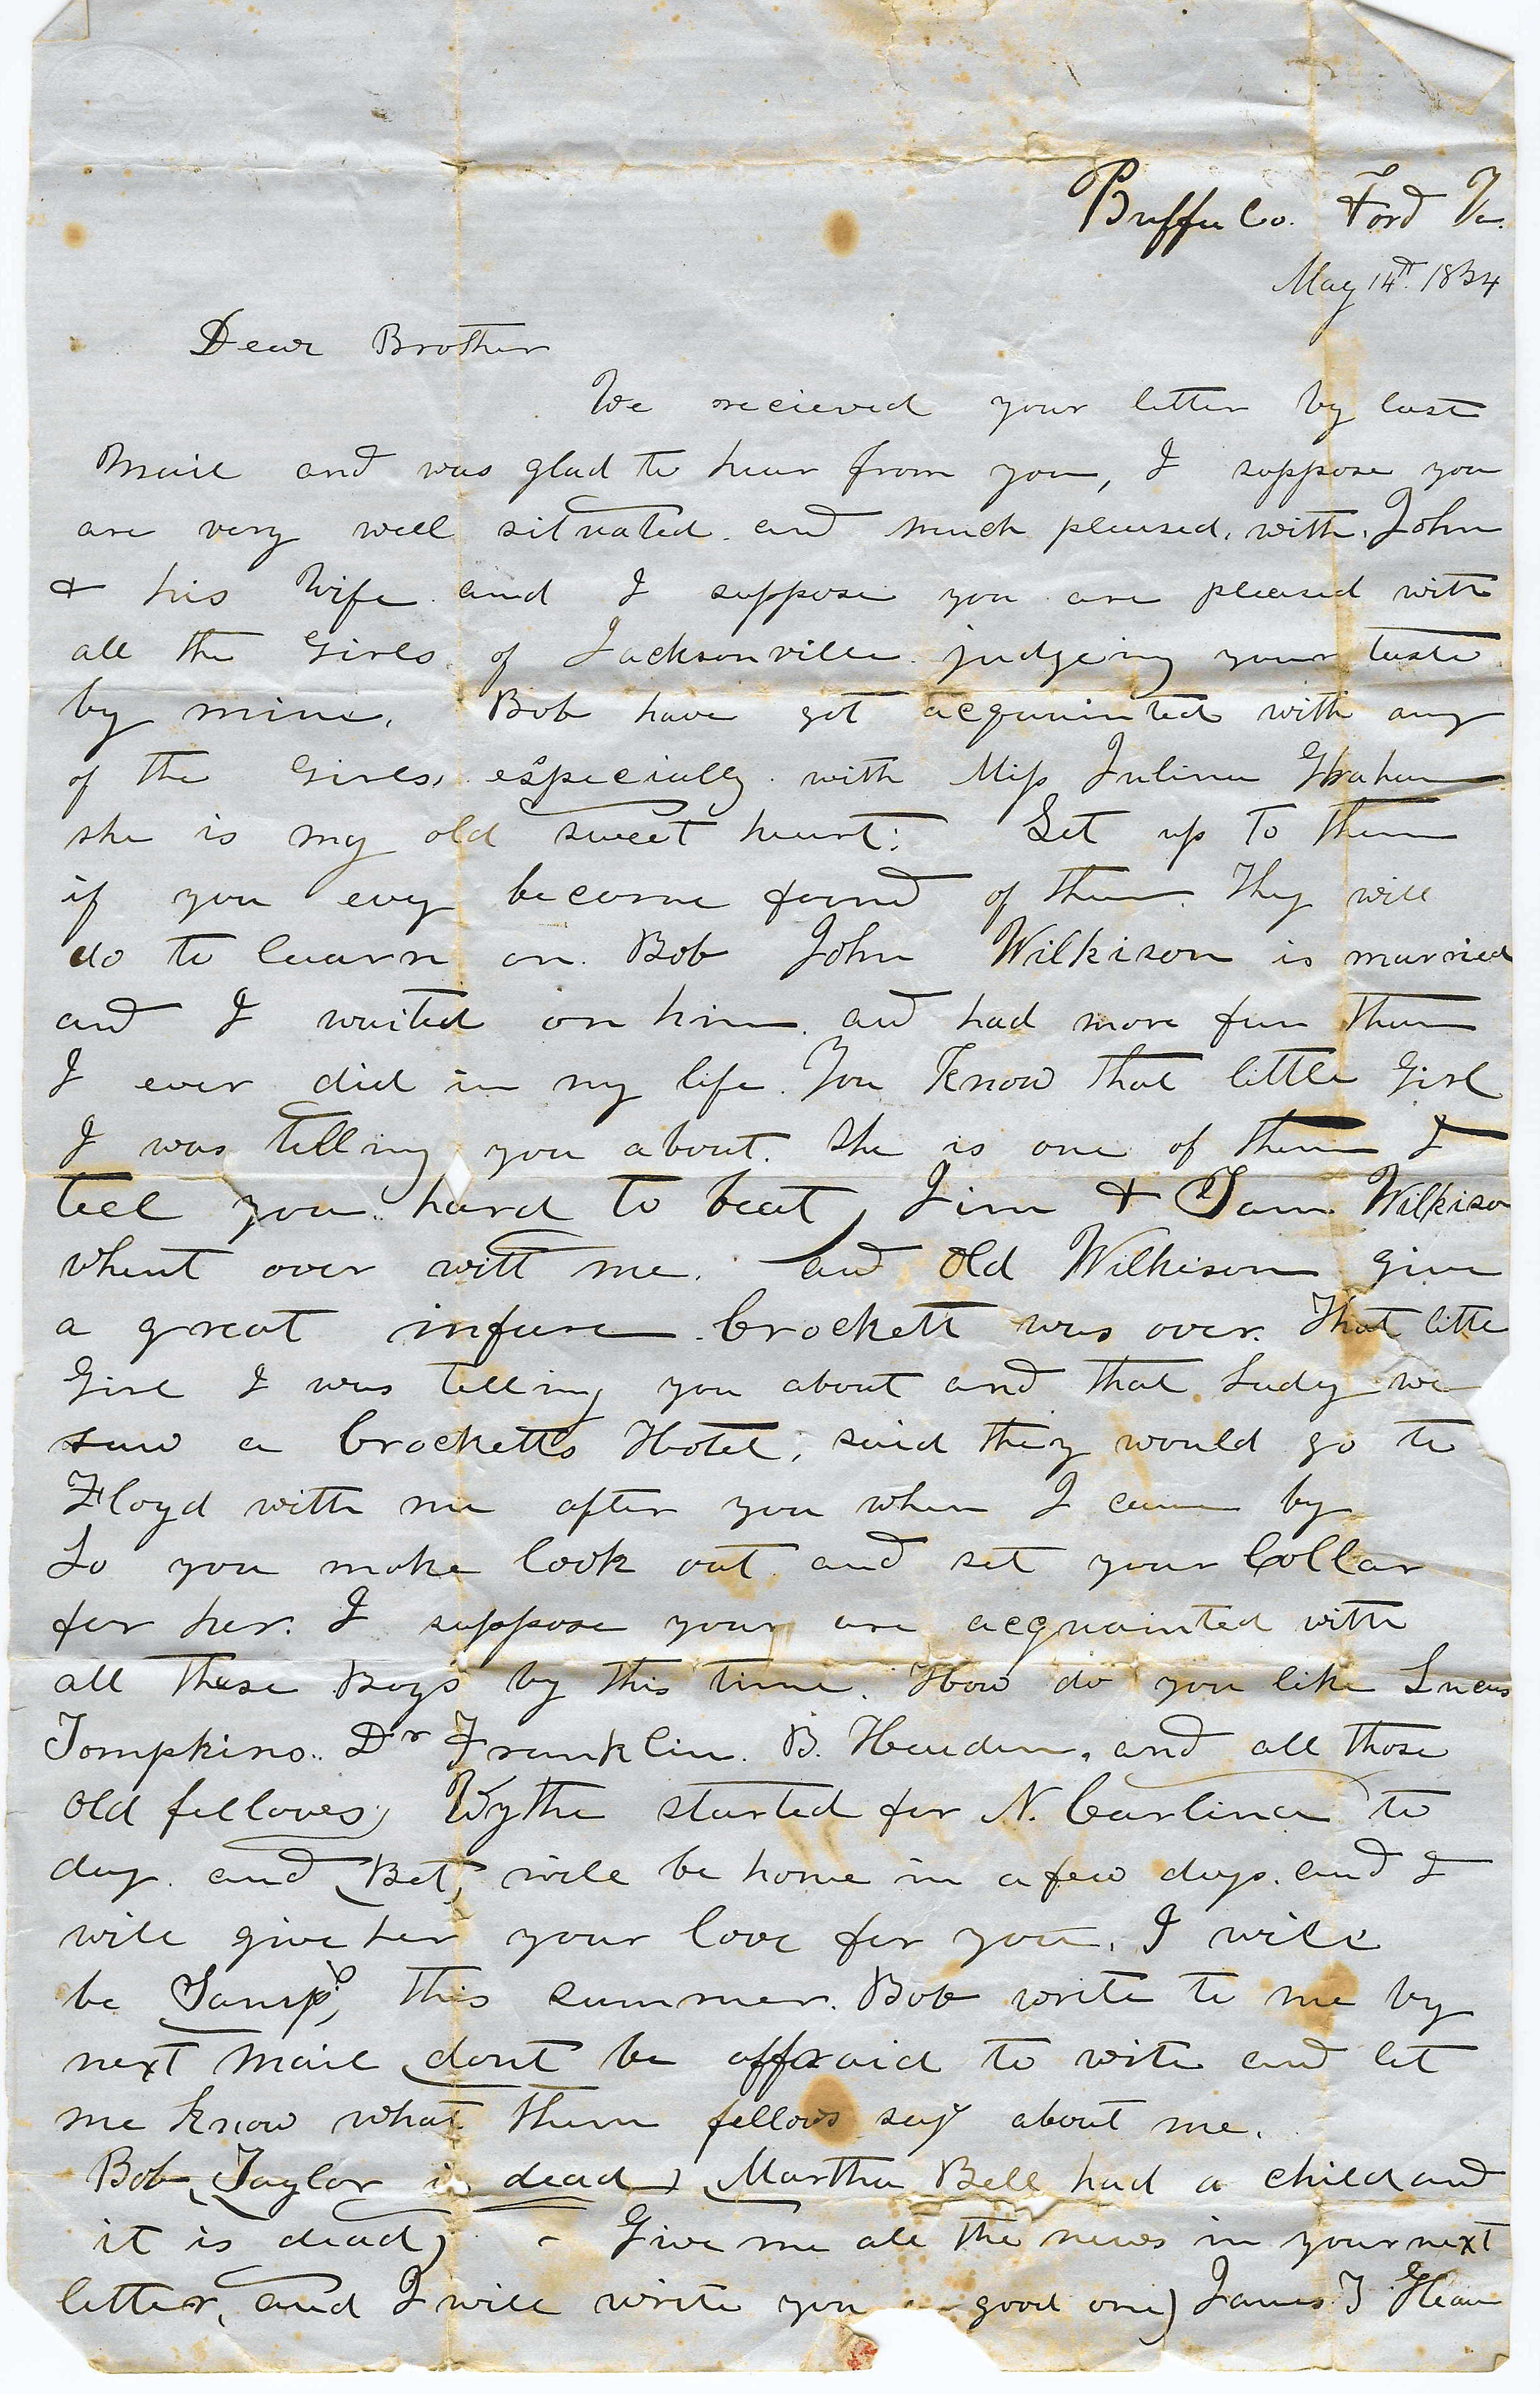 Buffalo. Ford Va.
May 14th. 1854
Dear Brother
We recieved your letter by last
Mail and was glad to hear from you, I suppose you
are very well situated. and much pleased, with, John
& his Wife. and I suppose you are pleased with
all the Girls. of Jacksonville. judgeing your taste
by mine. Bob have got acquainted with any
of the Girls, especially. with Miss Julina Graham
she is my old sweet heart: Set up To them
if you evry become found of them. They will
do to learn on. Bob John Wilkison is married
and I waited on him. and had more fun than
I ever did in my life. You Know that little Girl
I was telling you about. She is one of them I
tell you. hard to beat, Jim & Sam Wilkison
whent over witt me. and Old Wilkison give
a great infare. Crockett was over. That little
Girl I was telling you about and that Lady we
saw a Crocketts Hotel, said they would go to
Floyd with me after you when I came by
So you make look out. and set your Collar
for her. I suppose your are acquainted with
all these Boys by this time. How do you like
Tompkins.. Dr Franklin. B. and all those
Old felloves, Wythe started for N. Carlina to
day. and Bet, will be home in a few days. and I
will give her your love for you. I will
be this summer. Bob write to me by
next Mail dont be affraid to write and let
me know what them fellows say about me.
Bob Taylor is dead, Martha Bell had a child and
it is dead, - Give me all the news in your next
letter, and I will write you a good one) James T